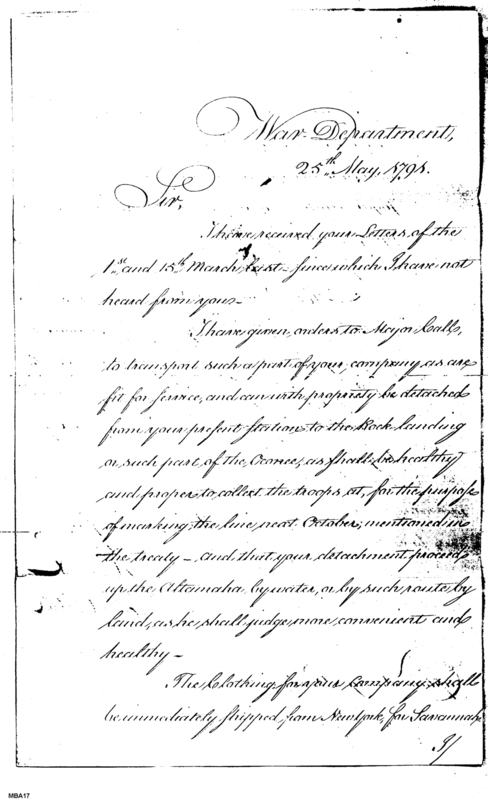 War Department,
25th May, 1791.
Sir,
I have received your Letters of the
1st and 15th March last - since which I have not
heard from you -
I have given orders to Major Call,
to transport such a part of your company as are
fit for service, and can with propriety be detached
from your present station to the Rock landing
or such part of the Oconee, as shall be healthy
and proper to collect the troops at, for the purpose
of marking the line next October, mentioned in
the treaty - and that your detachment proceed
up the Altamaha by water, or by such route by
land, as he shall judge more convenient and
healthy -
The Clothing for your Company shall
be immediately shipped from New York, for Savannah
MBA17